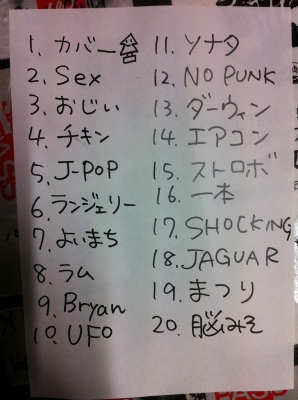 1. カバー
2. Sex
3. おじい
4. チキン
5. J-POP
6. ランジェリー
7. よいまち
8. ラム
9. Bryan
10. UFO
11. ソナタ
12. NO PUNK
13. ダーウィン
14. エアコン
15. ストロボ
16. 一本
17. SHOCKING
18. JAGUAR
19. まつり
20. 脳みそ